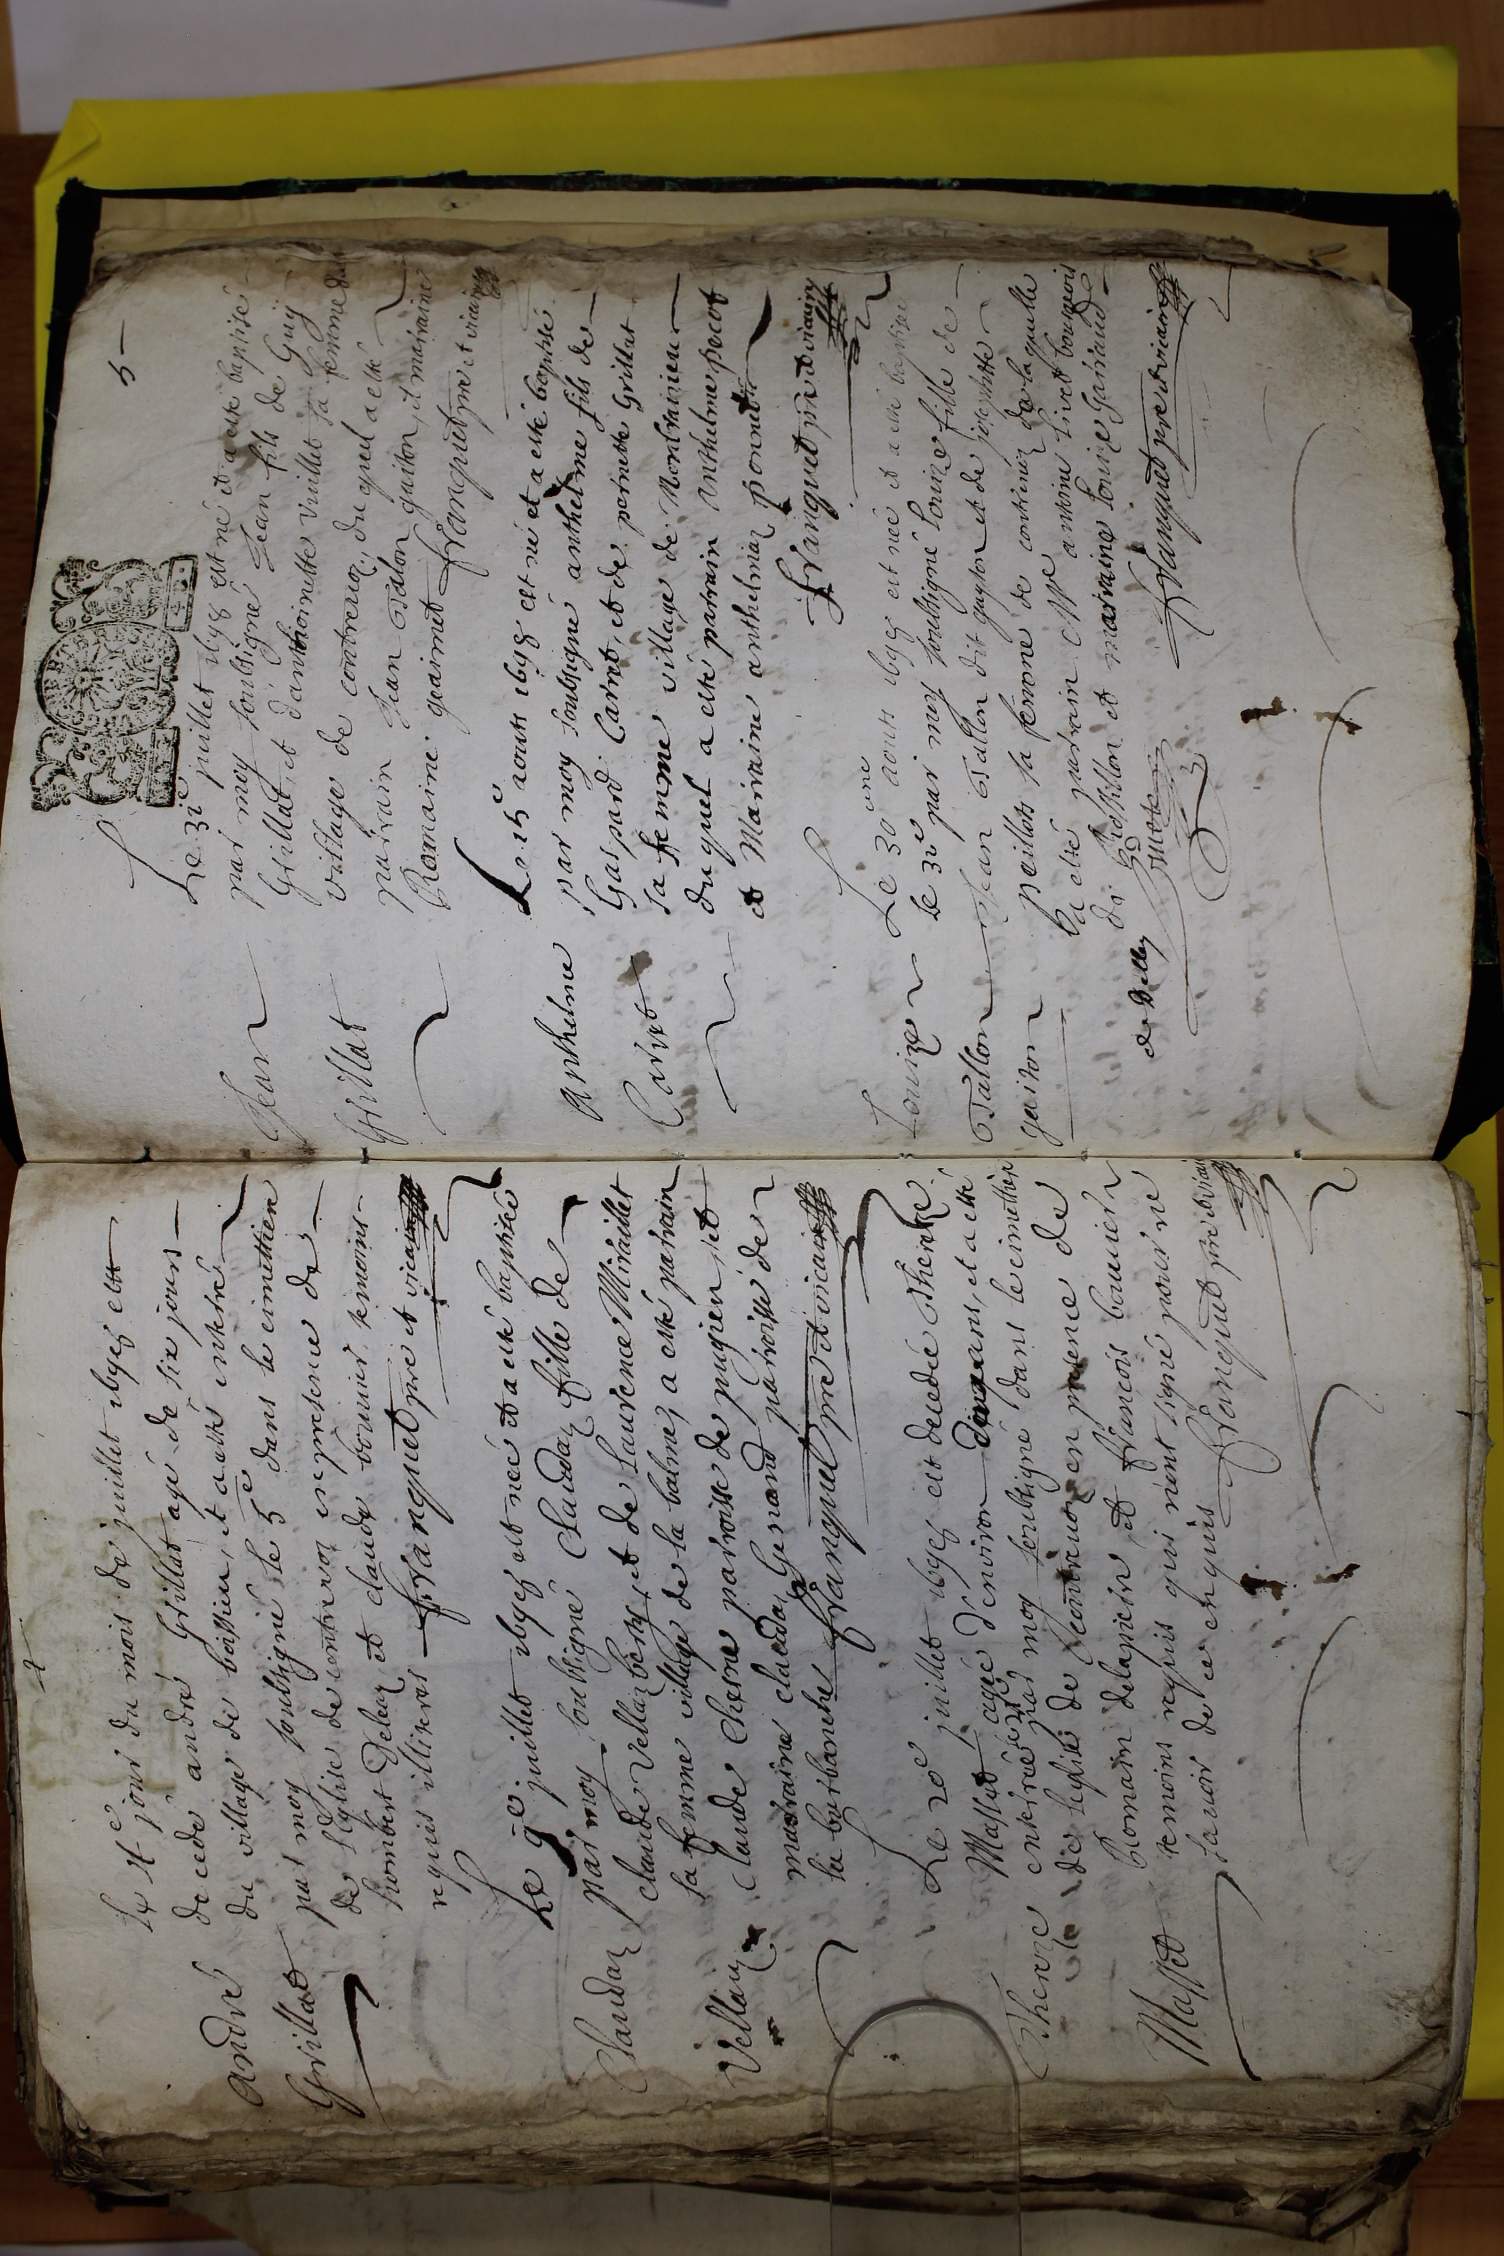 4
André
Grillat
Le 4e jour du mois de juillet 1698 est
decedé andré Grillat agé de six jours
du village de boissieu, et a esté enterré
par moy soubsigné le 5e dans le cimettiere
de l'eglise de contrevoz en presence de
humbert Delaz et claude bouvier temoins
requis illiteres Franquet pre et vicaire
Claudaz
Vellaz
Le 9e juillet 1698 est née et a esté baptisée
par moy soubsigné Claudaz fille de
claude Vellaz et de Laurence Miraillet
sa femme village de la balme, a esté parrain
Claude Chesne parroisse de pugieu, et
marraine claudaz Genand parroisse de
la burbanche Franquet pre et vicaire
Therese
Massett
Le 20e juillet 1698 est decedée Therese
Massett agée d'environ ans, et a esté
enterrée par moy soubsigné dans le cimettiere
de leglise de contrevoz en presence de
Romain delapierre et François bouvier
temoins requis qui n'ont signé pour ne
savoir de ce enquis Franquet pre et vicaire
5
Jean
Grillat
Le 31e juillet 1698 est né et a esté baptisé
par moy soubsigné Jean fils de Guy
Grillat, et d'anthoinette Vuillet sa femme du
village de contrevoz, du quel a esté
parrain Jean Tallon gaiton, et marraine
Romaine Franquet pre et vicaire
Anthelme
Carret
Le 15e aoust 1698 est né et a esté baptisé
par moy soubsigné anthelme fils de
Gaspard Carret, et de pernette Grillat
sa femme village de Montbrisieu
du quel a esté parrain Anthelme percot
et Marraine anthelmaz ponnet
Franquet pre et vicaire
Louize
Tallon
gaiton
Le 30me aoust 1698 est née et a esté baptisée
le 31e par moy soubsigné Louize fille de
Jean Tallon dit gayton et de josephte
peillott sa femme de contrevoz de laquelle
a esté parrain Mre antoine livet bourgeois
de et marraine Louize Jarraud
Franquet pre et vicaire